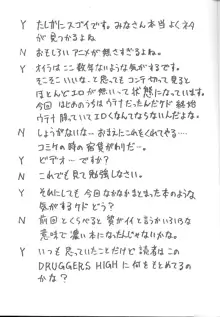 Y たしかにスゴイです。みなさん本当よくネタ
が見つかるよね
N おもしろいアニメが無さすぎるよね。
Y オイラはここ数年ないような気がするです。
そこそこいいな、と思ってもコンテ切って見ると
ほとんどエロが無いって状態になっています。
今回はじめのうちはウテナだったんだケド始始
ウテナ脱いでいてエロくなんてならないんだよな。
N しょうがないな…おまえにこれをくれてやる…
コミケの時の宿賃がわりだ…。
Y ビデオ…ですか?
N これでも見て勉強しなさい。
Y それにしても今回なかなかまとまった本のような
気がするケドどう?
N 前回とくらべると質がイイと言うかいろいろな
意味で濃い本になったんじゃないかな。
Y いつも思っていたことだけど読者はこの
DRUGGERS HIGHに何をもとめてるの
かな?